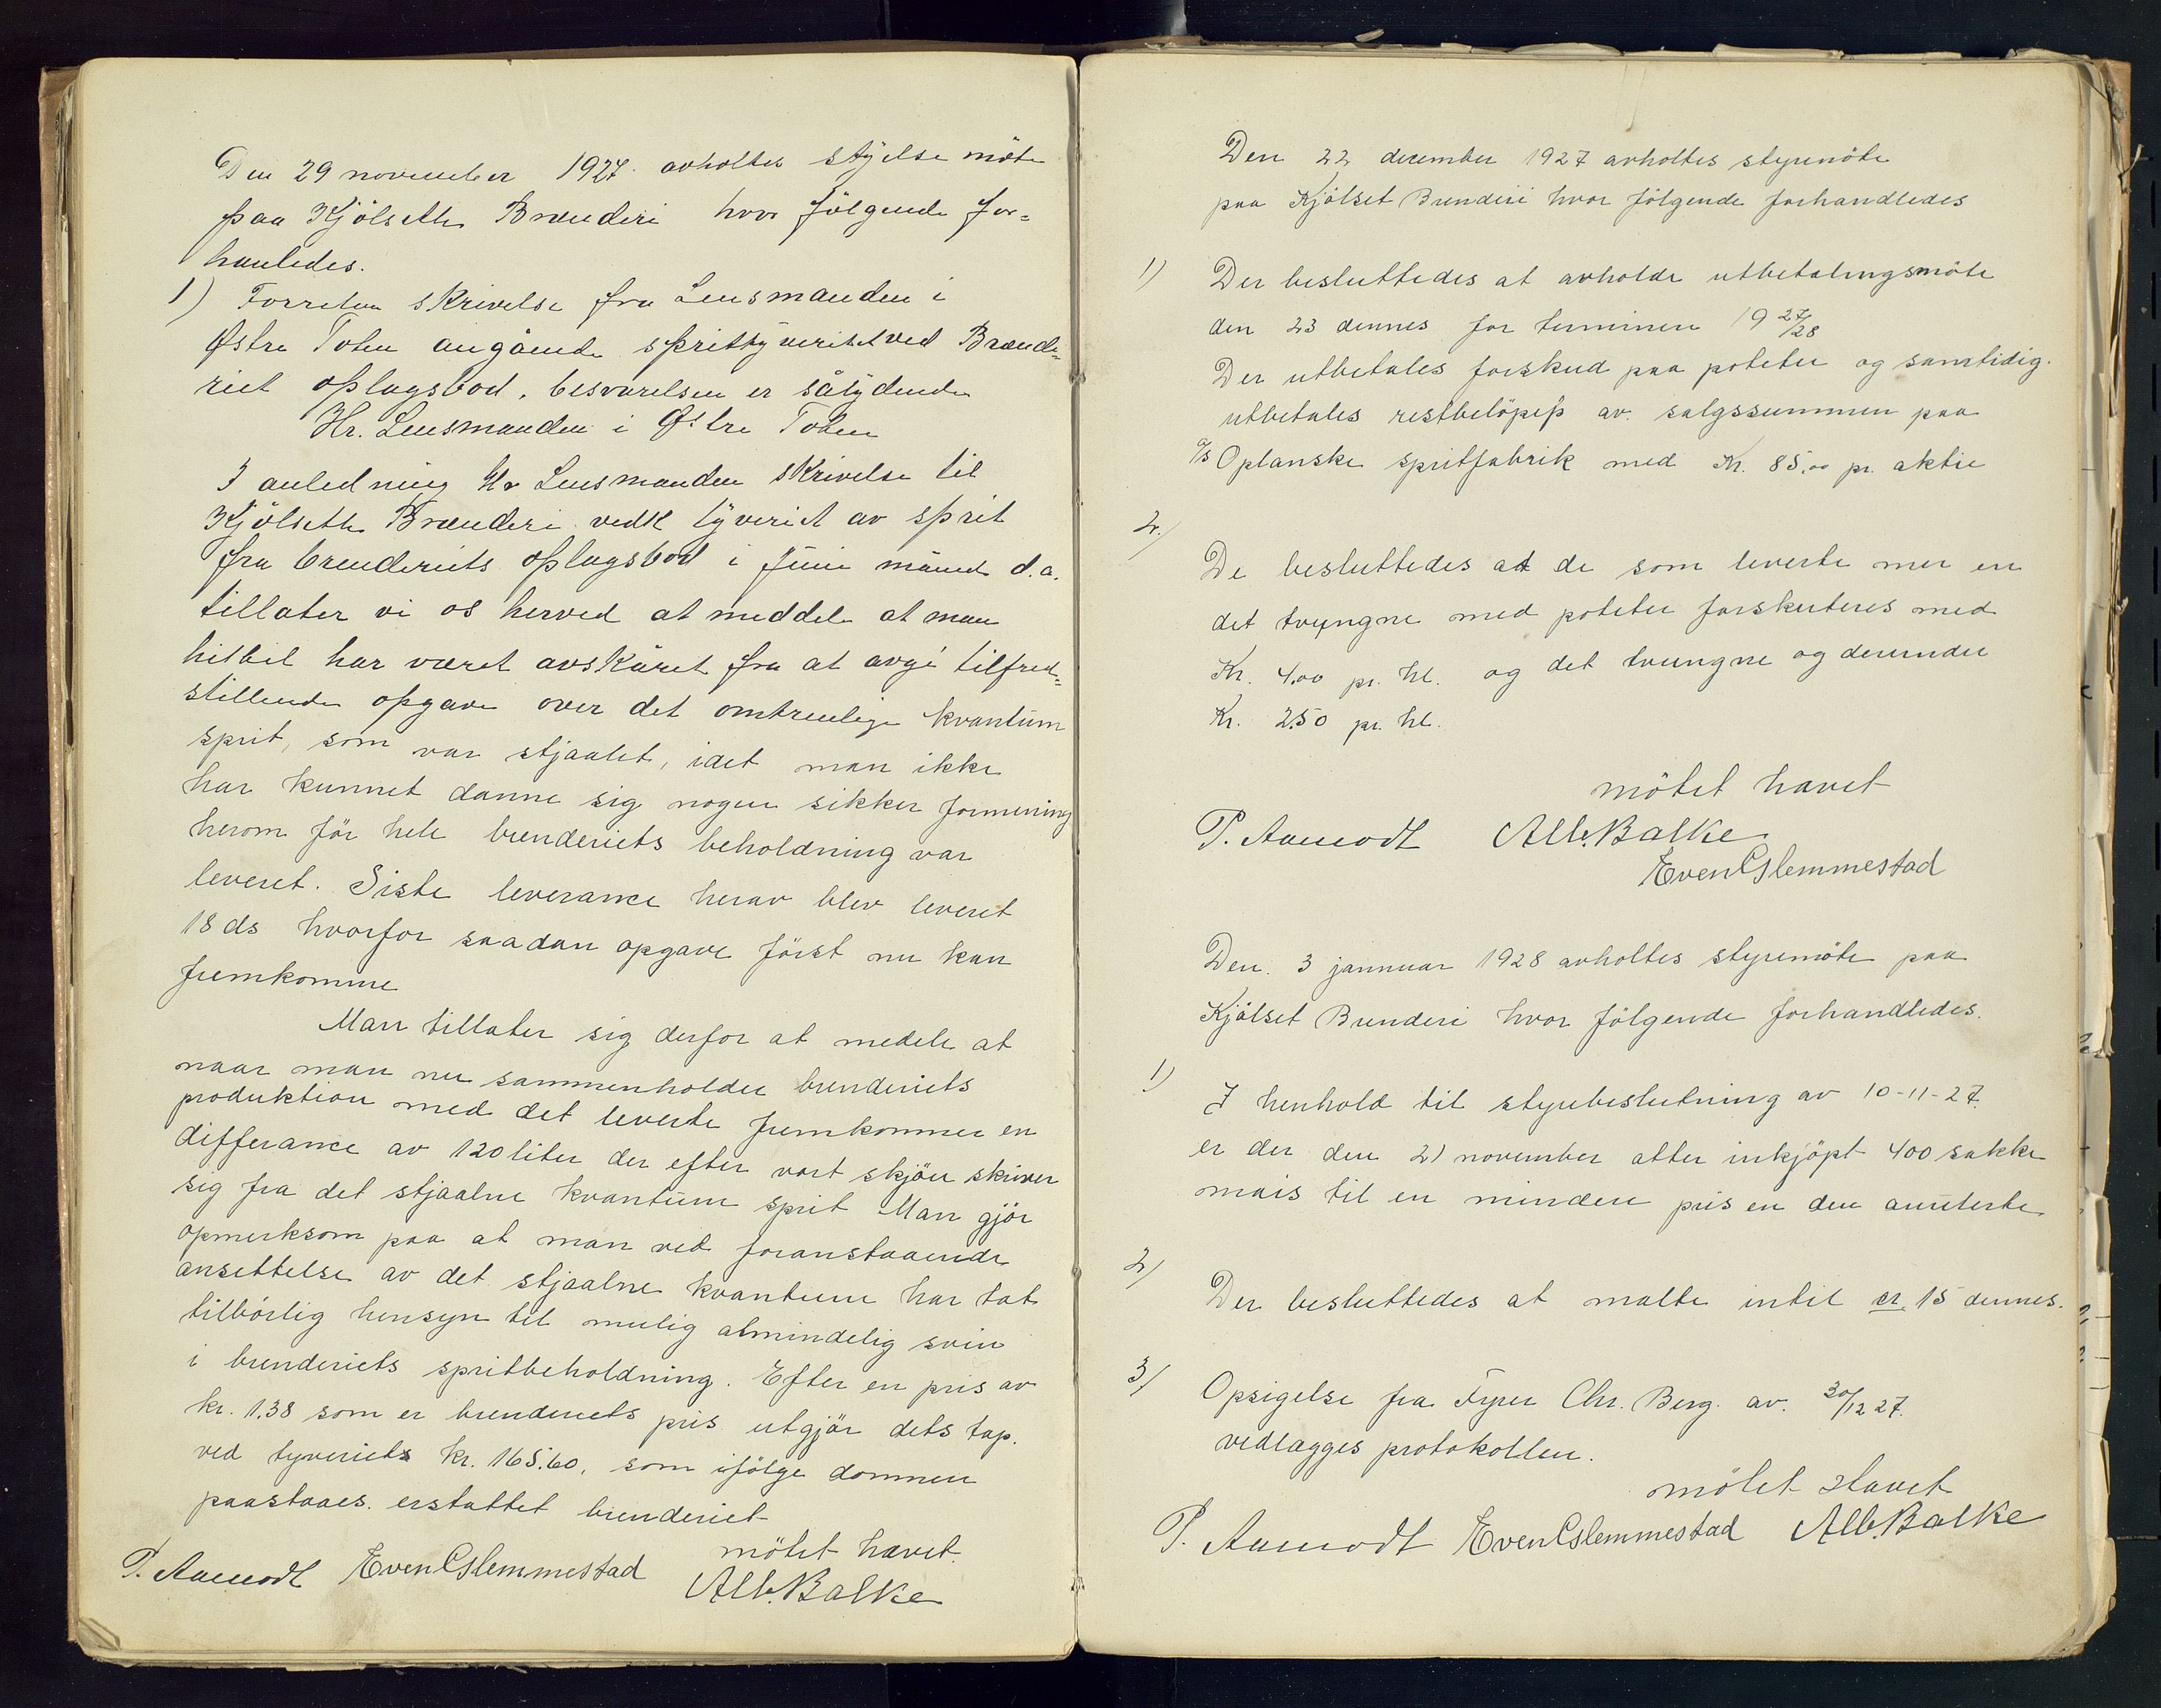 Den 29 november 1927 avholtes styelse möte
paa Kjölseth Brænderi hvor fölgende for=
hanledes.
1) Forrelan skrivelse fra Lensmanden i
Østre Toten angående sprittyveriet ved Brænde=
riet oplagsbod, besvarelsen er sålydende
Hr. Lensmanden i Østre Toten
I anledning Hr Lensmanden skrivelse til
Kjölseth Brænderi vedk tyveriet av sprit
fra brenderiets oplagsbod i Juni måned d.a.
tillater vi os herved at meddele at man
hittil har været avskåret fra at avgi tilfred=
stillende opgave over det omtrenlige kvantum
sprit, som var stjaalet, idet man ikke
har kunnet danne sig nogen sikker formening
herom för hele brenderiets beholdning var
leveret. Siste leverance herav blev leveret
18 ds hvorfor saadan opgave först nu kan
fremkomme
Man tillater sig derfor at medele at
naar man nu sammenholder brenderiets
produktion med det leverte fremkommer en
differance av 120 liter der efter vort skjön skriver
sig fra det stjaalne kvantum sprit Man gjör
opmerksom paa at man ved foranstaaende
ansettelse av det stjaalne kvantum har tat
tilbörlig hensyn til mulig almindelig svin
i brenderiets spritbeholdning. Efter en pris av
kr. 1,38 som er brenderiets pris utgjör dets tap
ved tyveriets kr. 165.60, som ifölge dommen
paastaaes erstattet brenderiet
mötet hævet.
P. Aamodt Even Glemmestad
Alb. Balke
Den 22 december 1927 avholtes styremöte
paa Kjölset Brenderi hvor fölgende forhandledes
1) Der besluttedes at avholde utbetalingsmöte
den 23 dennes for terminen 19 27/28
Der utbetales forskud paa poteter og samtidig
utbetales restbelöpet av salgssummen paa
A/S Oplanske spritfabrik med Kr. 85,00 pr. aktie
2.)
De besluttedes at de som leverte mer en
det tvungne med poteter forskuteres med
Kr. 4.00 pr. hl. og det tvungne og derunder
Kr. 2.50 pr. hl.
mötet hævet
P. Aamodt Alb. Balke
Even Glemmestad
Den 3 jannuar 1928 avholtes styremöte paa
Kjölset Brenderi hvor fölgende forhandledes.
1)
I henhold til styrebeslutning av 10-11-27.
er der den 21 november atter inkjöpt 400 sække
mais til en mindere pris en den anmeterte
2)
Der besluttedes at malte intil cr. 15 dennes.
3) Opsigelse fra Fyrer Chr. Berg. av. 30/12 27.
vedlægges protokollen.
mötet hævet
P. Aamodt Even Glemmestad Alb. Balke